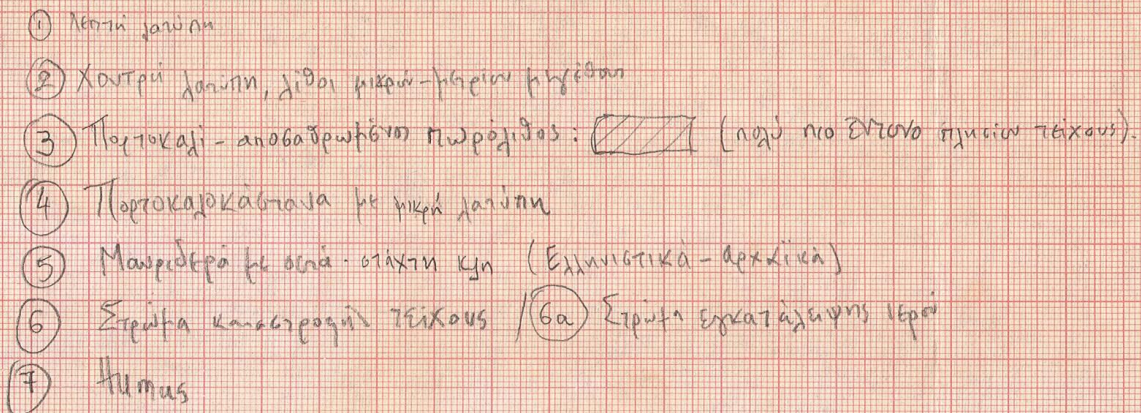 ① Λεπτή λατύπη
② Χοντρή λατύπη, λίθοι μικρού-μετρίου μεγέθους
③ Πορτοκαλί - αποσαθρωμένος πωρόλιθος: (πολύ πιο έντονο πλησίον τείχους).
④ Πορτοκαλοκάστανα με μικρή λατύπη
⑤ Μαυριδερά με οστά · στάχτη κλπ (Ελληνιστικά - αρχαϊκά)
⑥ Στρώμα καταστροφής τείχους / 6α Στρώμα εγκατάλειψης ιερού
⑦ Humus